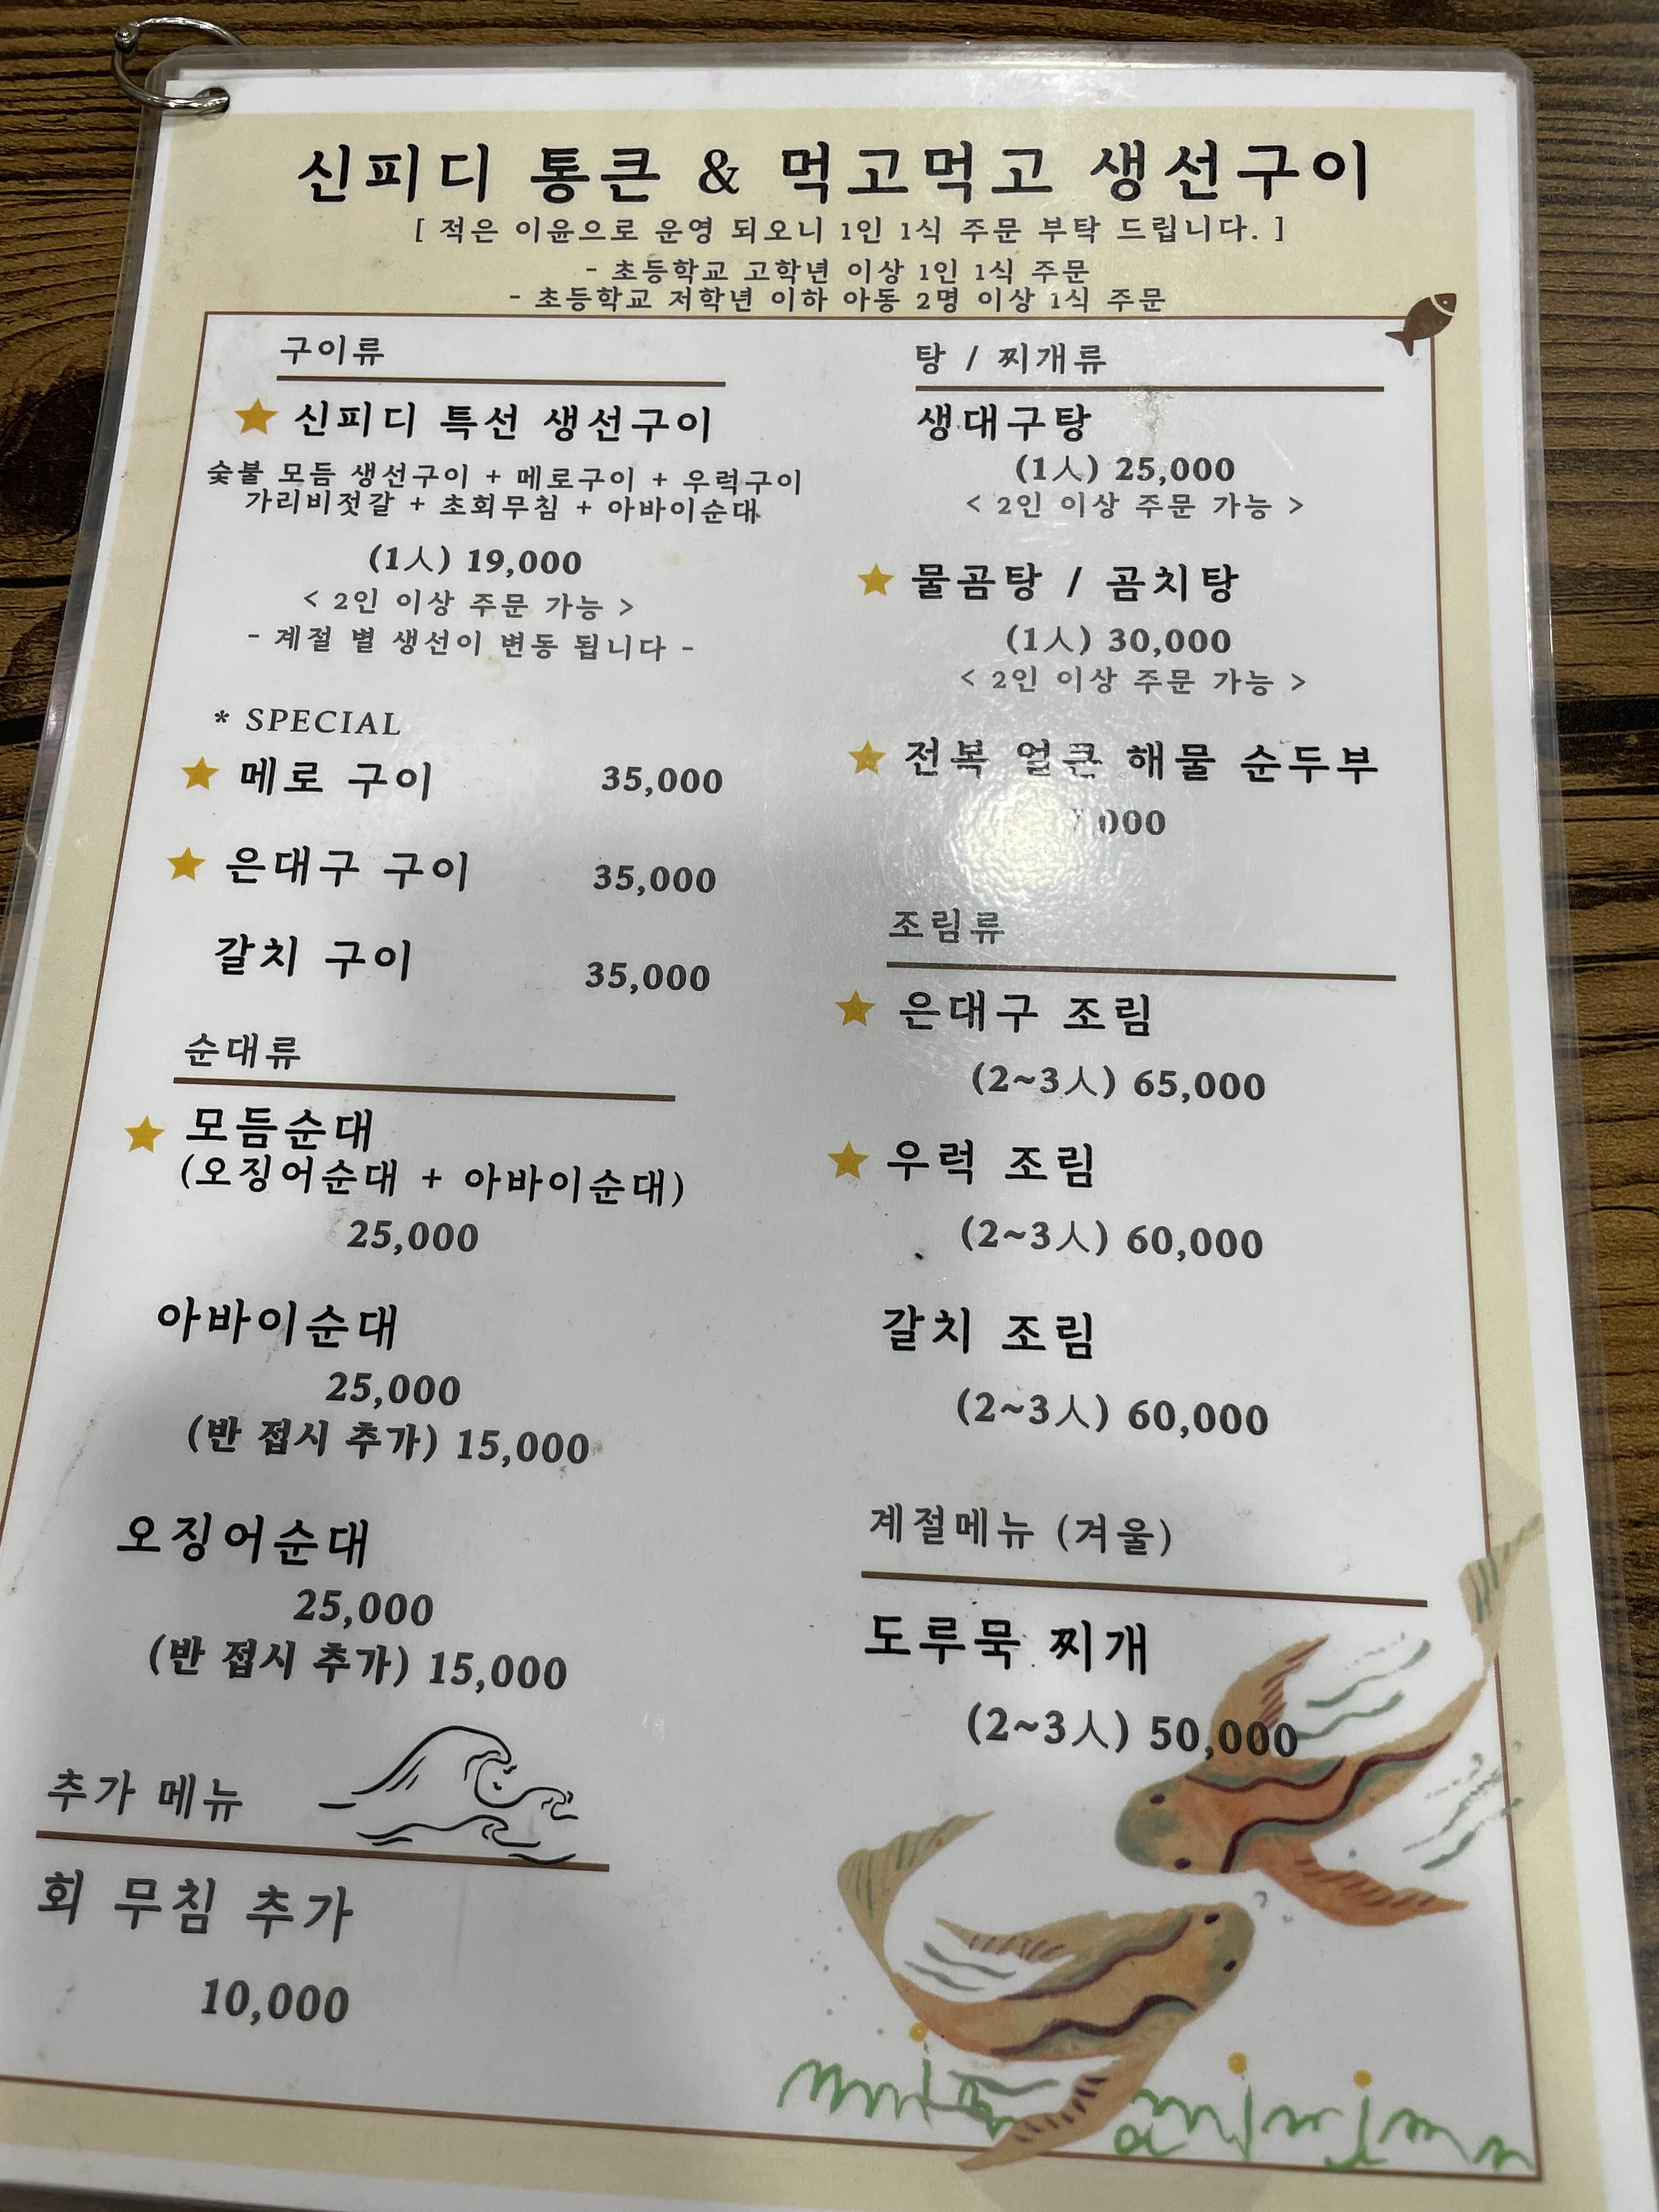 신피디 통큰 & 먹고먹고 생선구이
[ 적은 이윤으로 운영 되오니 1인 1식 주문 부탁 드립니다. ]
- 초등학교 고학년 이상 1인 1식 주문
- 초등학교 저학년 이하 아동 2명 이상 1식 주문
구이류
신피디 특선 생선구이
숯불 모듬 생선구이 + 메로구이 + 우럭구이
가리비젓갈 + 초회무침 + 아바이순대
(1人) 19,000
< 2인 이상 주문 가능 >
- 계절 별 생선이 변동 됩니다 -
* SPECIAL
메로 구이 35,000
은대구 구이 35,000
갈치 구이 35,000
순대류
모듬순대
(오징어순대 + 아바이순대)
25,000
아바이순대
25,000
(반 접시 추가) 15,000
오징어순대
25,000
(반 접시 추가) 15,000
추가 메뉴
회 무침 추가
10,000
탕 / 찌개류
생대구탕
(1人) 25,000
< 2인 이상 주문 가능 >
물곰탕 / 곰치탕
(1人) 30,000
< 2인 이상 주문 가능 >
전복 얼큰 해물 순두부
조림류
은대구 조림
(2~3人) 65,000
우럭 조림
(2~3人) 60,000
갈치 조림
(2~3人) 60,000
계절메뉴 (겨울)
도루묵 찌개
(2~3人) 50,000